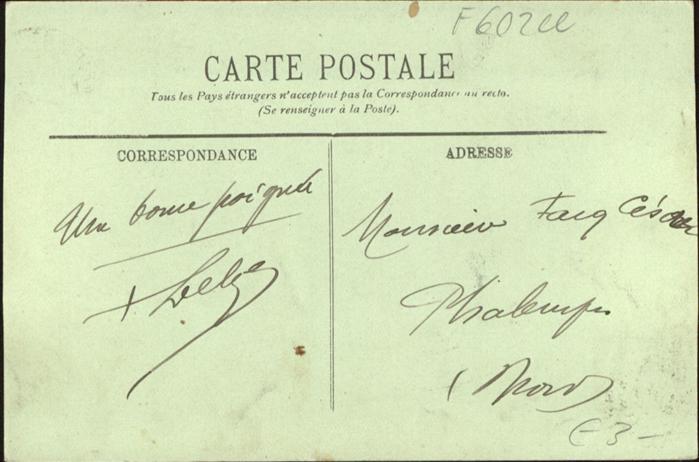 F602cc
CARTE POSTALE
Tous les Pays étrangers n'acceptent pas la Correspondance au recto.
(Se renseigner à la Poste).
CORRESPONDANCE
ADRESSE
Une bonne poignée
Monsieur César
Phalempin
(Nord)
€ 3-